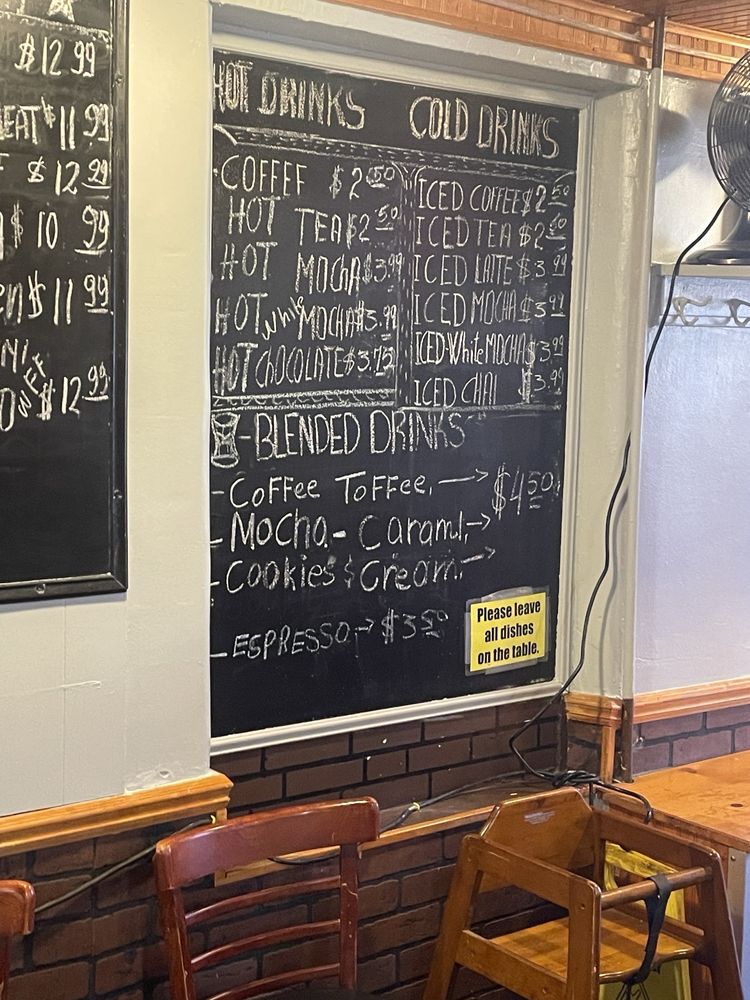 $12.99
EAT $11.99
$12.99
$10.99
$11.99
$12.99
HOT DRINKS
COFFEE $2.50
HOT TEA $2.50
HOT MOCHA $3.99
HOT White MOCHA $3.99
HOT CHOCOLATE $3.75
COLD DRINKS
ICED COFFEE $2.50
ICED TEA $2.50
ICED LATTE $3.99
ICED MOCHA $3.99
ICED White MOCHA $3.99
ICED CHAI $3.99
-BLENDED DRINKS
-Coffee Toffee, → $4.50
-Mocha - Caraml, →
-Cookies $ Cream, →
-ESPRESSO → $3.50
Please leave
all dishes
on the table.